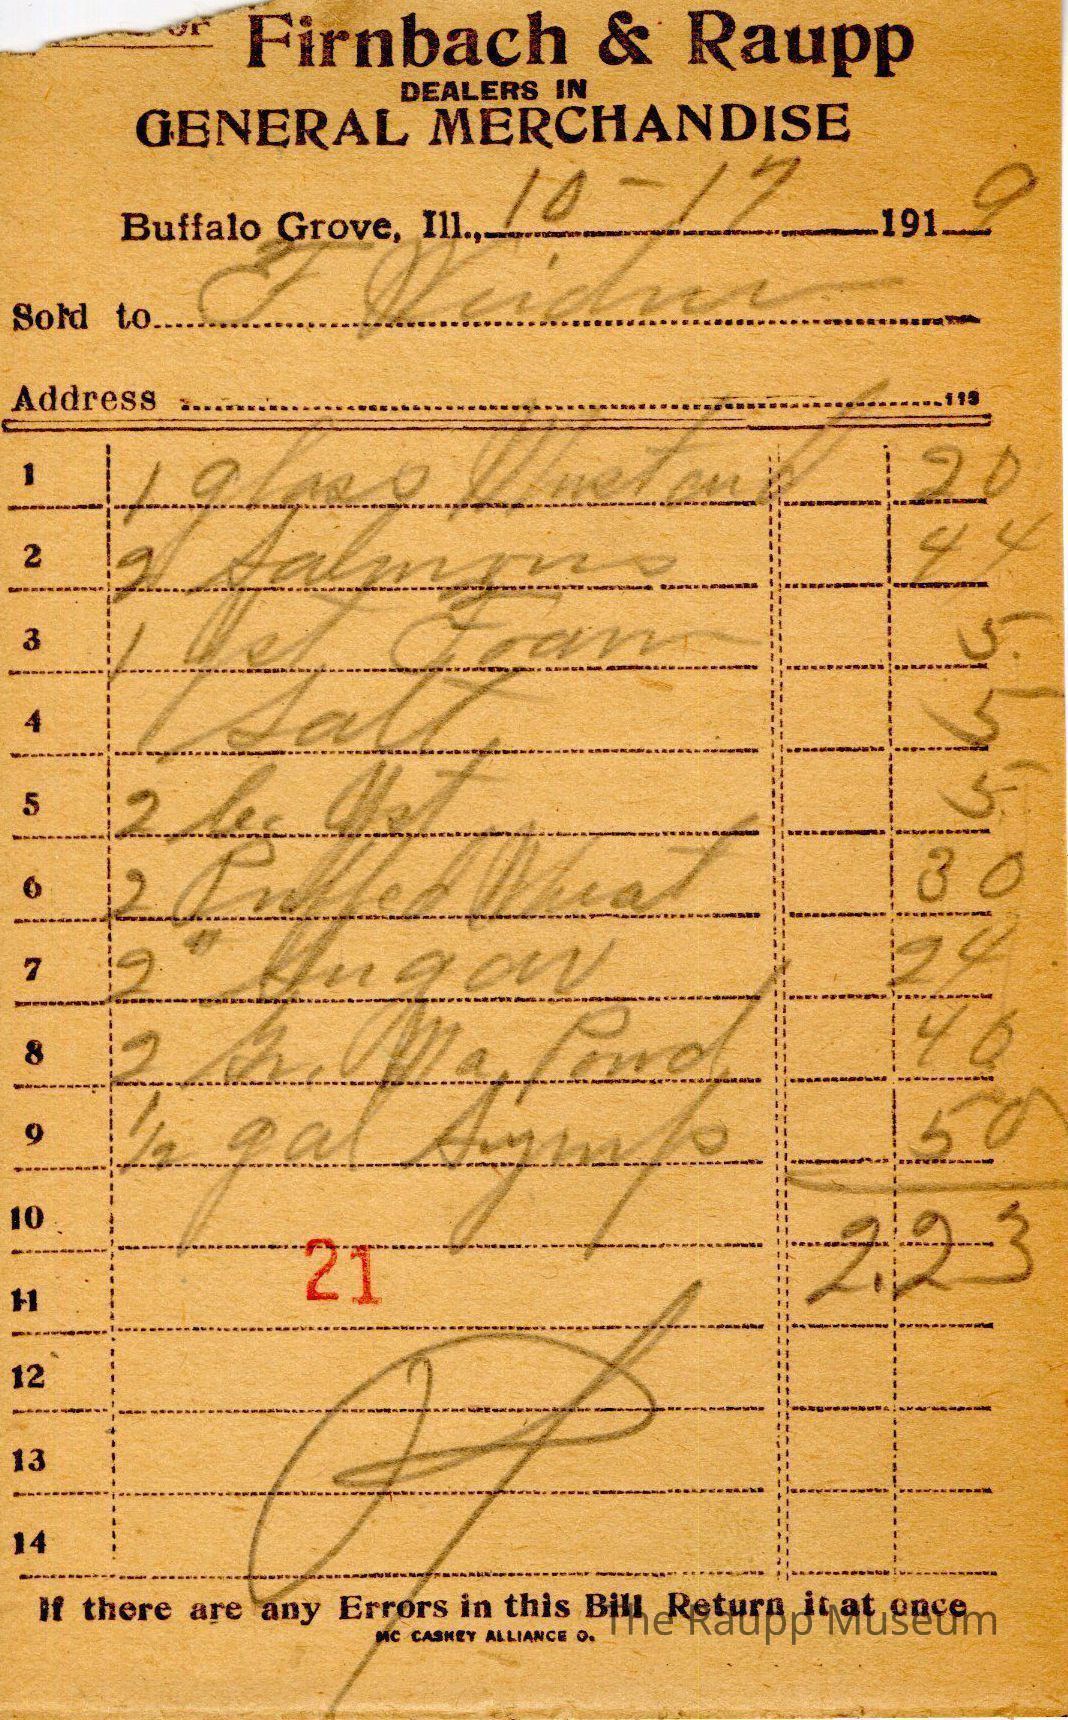 OF
Firnbach & Raupp
DEALERS IN
GENERAL MERCHANDISE
Buffalo Grove, Ill., 10-17 1919
Sold to F Weidner
Address 118
1 1 glass Mustard 20
2 2 Salmons 44
3 1 Yst. Foam 5
4 Salt 5
5 2 Yst 5
6 2 Puffed Wheat 30
7 2 " Sugar 24
8 2 Powd 40
9 1/2 gal Syrup 50
10 2.23
21
11
12
13
14
If there are any Errors in this Bill Return it at once
MC CASKEY ALLIANCE O.
The Raupp Museum